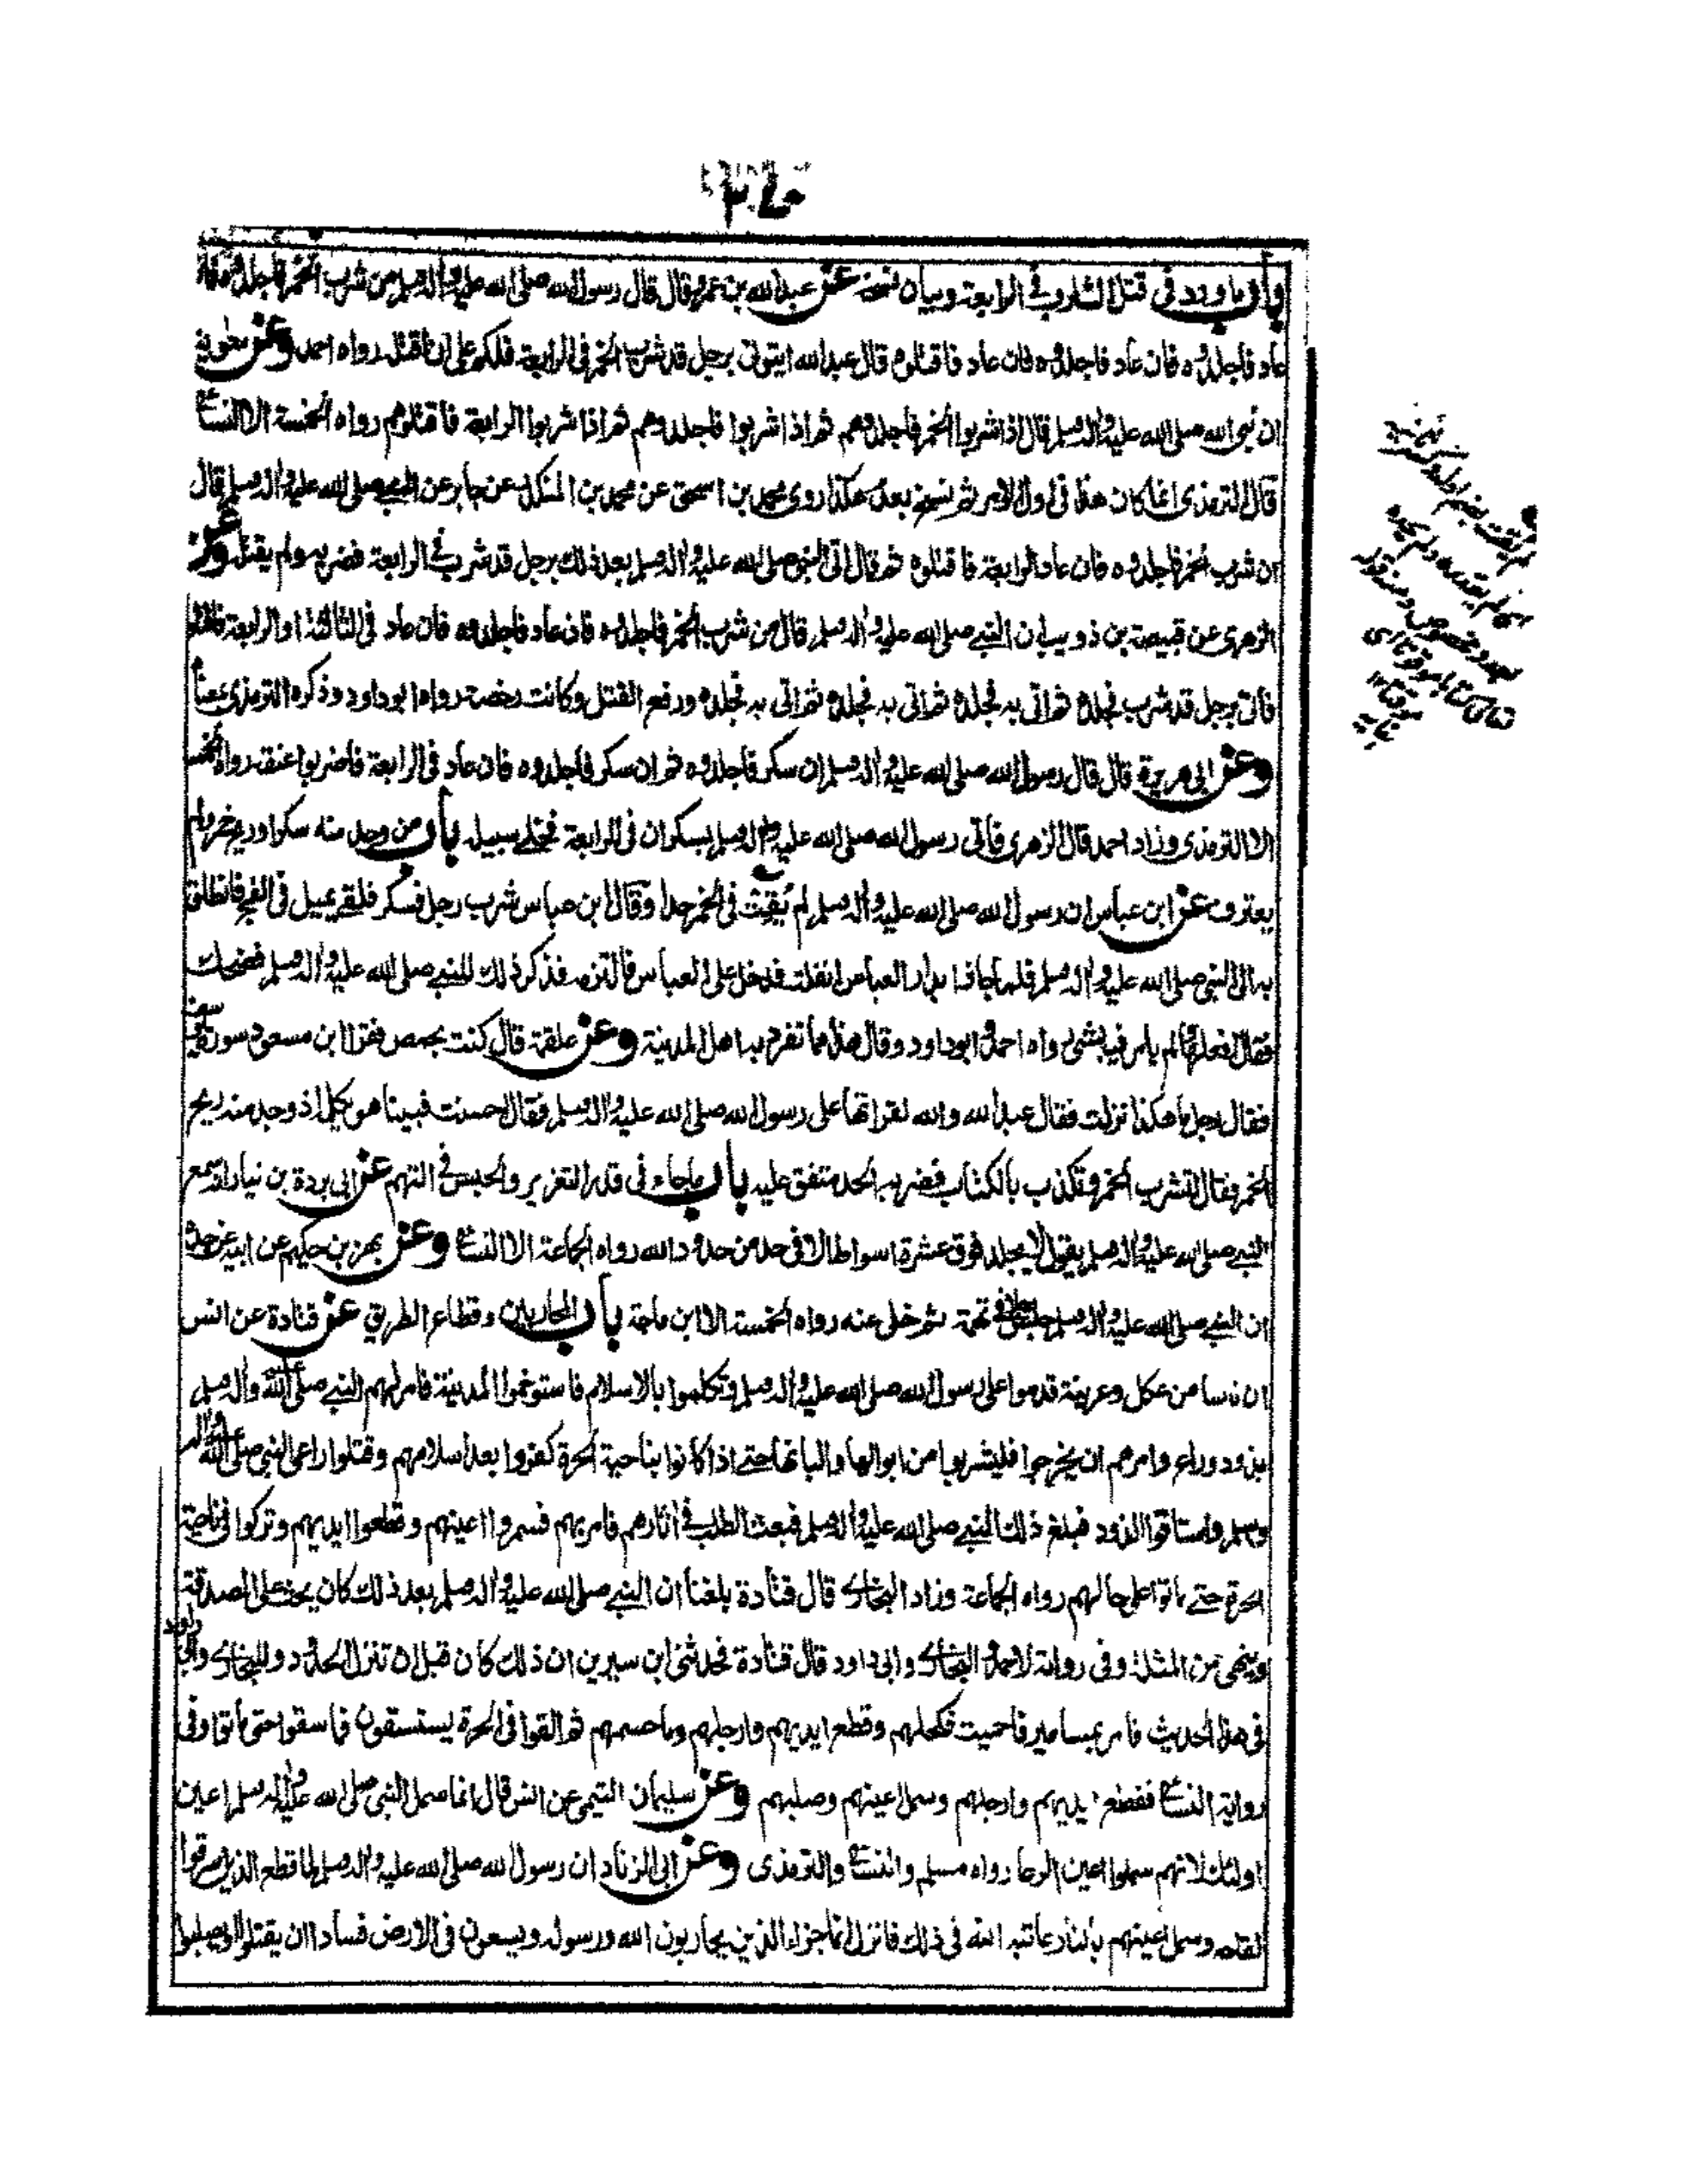 باب ما ورد فى قتل الشارب فى الرابعة وبيان نسخه عن عبد الله بن عمرو قال قال رسول الله صلى الله عليه واله وسلم من شرب الخمر فاجلدوه فان
عاد فاجلدوه فان عاد فاجلدوه فان عاد فاقتلوه قال عبد الله ايتونى برجل قد شرب الخمر فى الرابعة فلكم على ان اقتله رواه احمد وعن معوية
ان نبى الله صلى الله عليه واله وسلم قال اذا شربوا الخمر فاجلدوهم ثم اذا شربوا فاجلدوهم ثم اذا شربوا الرابعة فاقتلوهم رواه الخمسة الا النسائى
قال الترمذى انما كان هذا فى اول الامر ثم نسخ بعد هكذا روى محمد بن اسحق عن محمد بن المنكدر عن جابر عن النبى صلى الله عليه واله وسلم قال
ان شرب الخمر فاجلدوه فان عاد الرابعة فاقتلوه ثم قال اتى النبى صلى الله عليه واله وسلم بعد ذلك برجل قد شرب فى الرابعة فضربه ولم يقتله وعن
الزهرى عن قبيصة بن ذويب ان النبى صلى الله عليه واله وسلم قال من شرب الخمر فاجلدوه فان عاد فاجلدوه فان عاد فى الثالثة او الرابعة فاقتلوه
فاتى برجل قد شرب فجلده ثم اتى به فجلده ثم اتى به فجلده ثم اتى به فجلده ورفع القتل وكانت رخصة رواه ابو داود وذكره الترمذى بمعناه
وعن ابى هريرة قال قال رسول الله صلى الله عليه واله وسلم ان سكر فاجلدوه ثم ان سكر فاجلدوه فان عاد فى الرابعة فاضربوا عنقه رواه الخمسة
الا الترمذى وزاد احمد قال الزهرى فاتى رسول الله صلى الله عليه واله وسلم بسكران فى الرابعة فخلى سبيله باب من وجد منه سكر او ريح خمر ولم
يعترف عن ابن عباس ان رسول الله صلى الله عليه واله وسلم لم يقت فى الخمر حدا وقال ابن عباس شرب رجل فسكر فلقى يميل فى الفج فانطلق
به الى النبى صلى الله عليه واله وسلم فلما حاذا بدار العباس انفلت فدخل على العباس فالتزمه فذكر ذلك للنبى صلى الله عليه واله وسلم فضحك
فقال افعلها ولم يامر فيه بشئ رواه احمد وابو داود وقال هذا مما تفرد به اهل المدينة وعن علقمة قال كنت بحمص فقرا ابن مسعود سورة يوسف
فقال رجل ما هكذا نزلت فقال عبد الله والله لقراتها على رسول الله صلى الله عليه واله وسلم فقال احسنت فبينا هو يكلمه اذ وجد منه ريح
الخمر فقال اتشرب الخمر وتكذب بالكتاب فضربه الحد متفق عليه باب ما جاء فى قدر التعزير والحبس فى التهم عن ابى بردة بن نيار انه سمع
النبى صلى الله عليه واله وسلم يقول لا يجلد فوق عشرة اسواط الا فى حد من حدود الله رواه الجماعة الا النسائى وعن بهز بن حكيم عن ابيه عن جده
ان النبى صلى الله عليه واله وسلم حبس رجلا فى تهمة ثم خلى عنه رواه الخمسة الا ابن ماجة باب المحاربين وقطاع الطريق عن قتادة عن انس
ان ناسا من عكل وعرينة قدموا على رسول الله صلى الله عليه واله وسلم وتكلموا بالاسلام فاستوخموا المدينة فامر لهم النبى صلى الله واله وسلم
بذود وراع وامرهم ان يخرجوا فليشربوا من ابوالها والبانها حتى اذا كانوا بناحية الحرة كفروا بعد اسلامهم وقتلوا راعى النبى صلى الله عليه واله
وسلم واستاقوا الذود فبلغ ذلك النبى صلى الله عليه واله وسلم فبعث الطلب فى اثارهم فامر بهم فسمروا اعينهم وقطعوا ايديهم وتركوا فى ناحية
الحرة حتى ماتوا على حالهم رواه الجماعة وزاد البخارى قال قتادة بلغنا ان النبى صلى الله عليه واله وسلم بعد ذلك كان يحث على الصدقة
وينهى عن المثلة وفى رواية لاحمد والبخارى وابى داود قال قتادة فحدثنى ابن سيرين ان ذلك كان قبل ان تنزل الحدود وللبخارى وابى داود
فى هذا الحديث فامر بمسامير فاحميت فكحلهم وقطع ايديهم وارجلهم وما حسمهم ثم القوا فى الحرة يستسقون فما سقوا حتى ماتوا وفى
رواية النسائى فقطع ايديهم وارجلهم وسمل اعينهم وصلبهم وعن سليمان التيمى عن انس قال انما سمل النبى صلى الله عليه واله وسلم اعين
اولئك لانهم سملوا اعين الرعا رواه مسلم والنسائى والترمذى وعن ابى الزناد ان رسول الله صلى الله عليه واله وسلم لما قطع الذين سرقوا
لقاحه وسمل اعينهم بالنار عاتبه الله فى ذلك فانزل انما جزاء الذين يحاربون الله ورسوله ويسعون فى الارض فسادا ان يقتلوا او يصلبوا